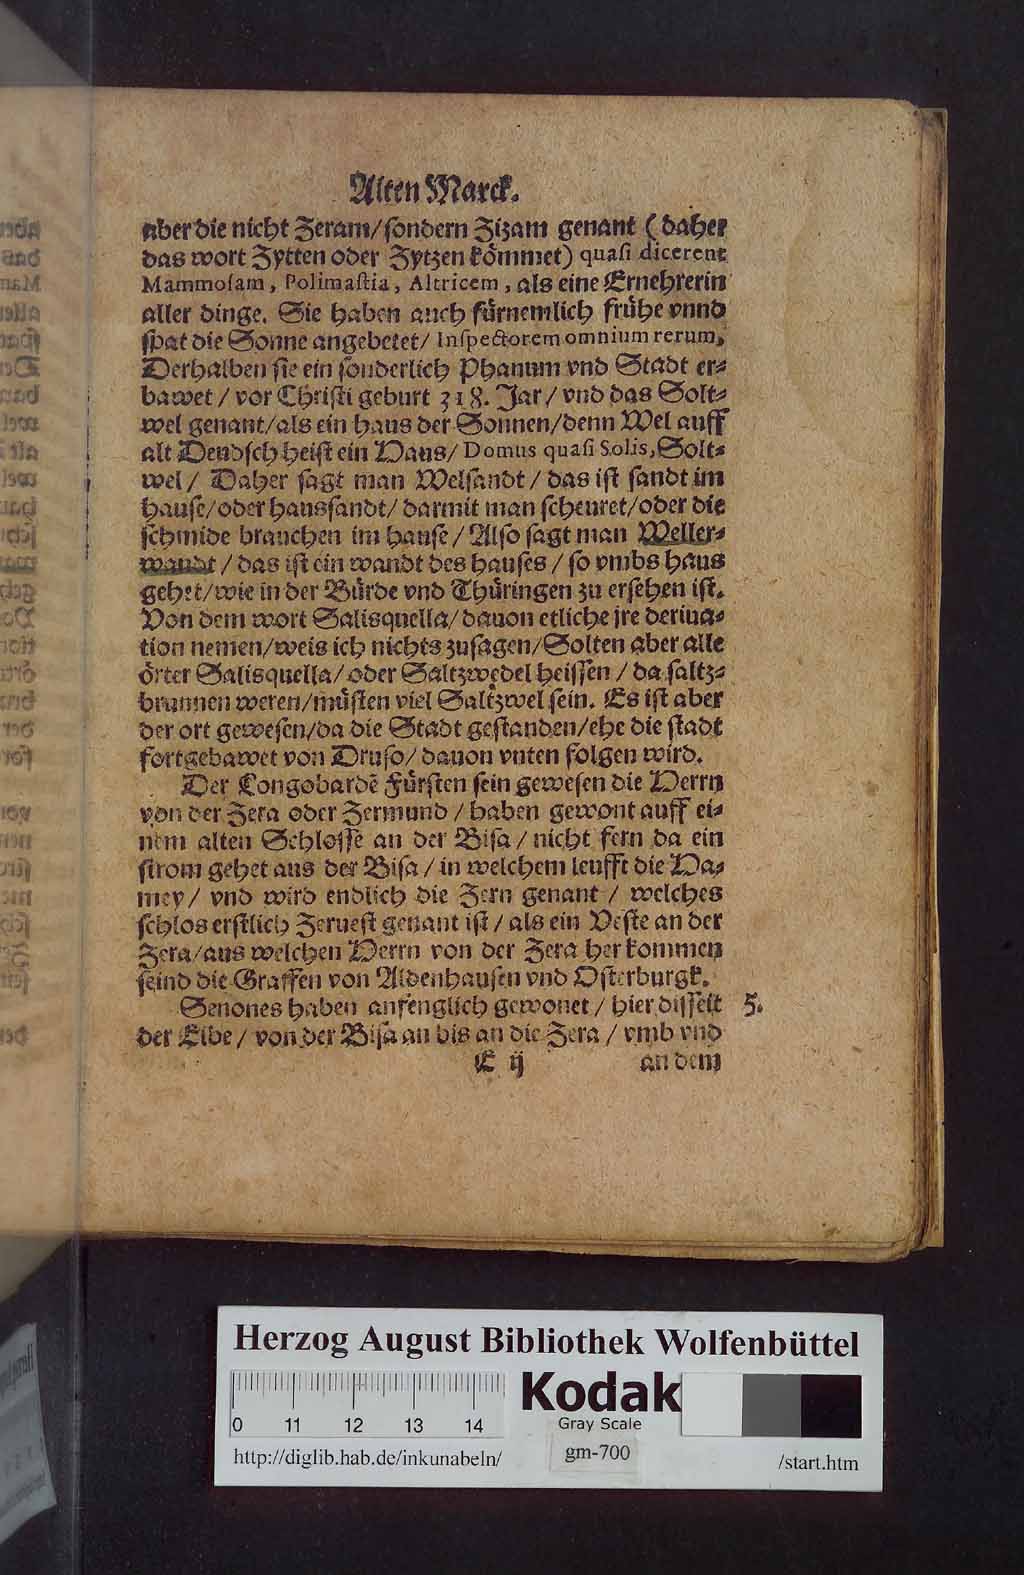 Alten Marck.
aber die nicht Zeram/ sondern Zizam genant ( daher
das wort Zytten oder Zytzen kömmet) quasi dicerent
Mammosam, Polimastia, Altricem, als eine Ernehrerin
aller dinge. Sie haben auch fürnemlich frühe vnnd
spat die Sonne angebetet/ Inspectorem omnium rerum,
Derhalben sie ein sonderlich Phanum vnd Stadt er-
bawet / vor Christi geburt 318. Jar / vnd das Solt-
wel genant/als ein haus der Sonnen/denn Wel auff
alt Deudsch heist ein Haus/ Domus quasi Solis, Solt-
wel / Daher sagt man Welsandt / das ist sandt im
hause/oder haussandt/ darmit man scheuret/oder die
schmide brauchen im hause / Also sagt man Weller-
wandt / das ist ein wandt des hauses / so vmbs haus
gehet/wie in der Bürde vnd Thüringen zu ersehen ist.
Von dem wort Salisquella/ dauon etliche jre deriua-
tion nemen/weis ich nichts zusagen/Solten aber alle
örter Salisquella/oder Saltzwedel heissen / da saltz-
brunnen weren/müsten viel Saltzwel sein. Es ist aber
der ort gewesen/da die Stadt gestanden/ehe die stadt
fortgebawet von Druso/ dauon vnten folgen wird.
Der Longobardē Fürsten sein gewesen die Herrn
von der Zera oder Zermund / haben gewont auff ei-
nem alten Schlosse an der Bisa / nicht fern da ein
strom gehet aus der Bisa / in welchem leufft die Ha-
mey / vnd wird endlich die Zern genant / welches
schlos erstlich Zeruest genant ist / als ein Veste an der
Zera/aus welchen Herrn von der Zera her kommen
seind die Graffen von Aldenhausen vnd Osterburgk.
Senones haben anfenglich gewonet / hier disseit 5.
der Elbe / von der Bisa an bis an die Zera / vmb vnd
E ij an dem
Herzog August Bibliothek Wolfenbüttel
Kodak
Gray Scale
0 11 12 13 14
http://diglib.hab.de/inkunabeln/ gm-700 /start.htm